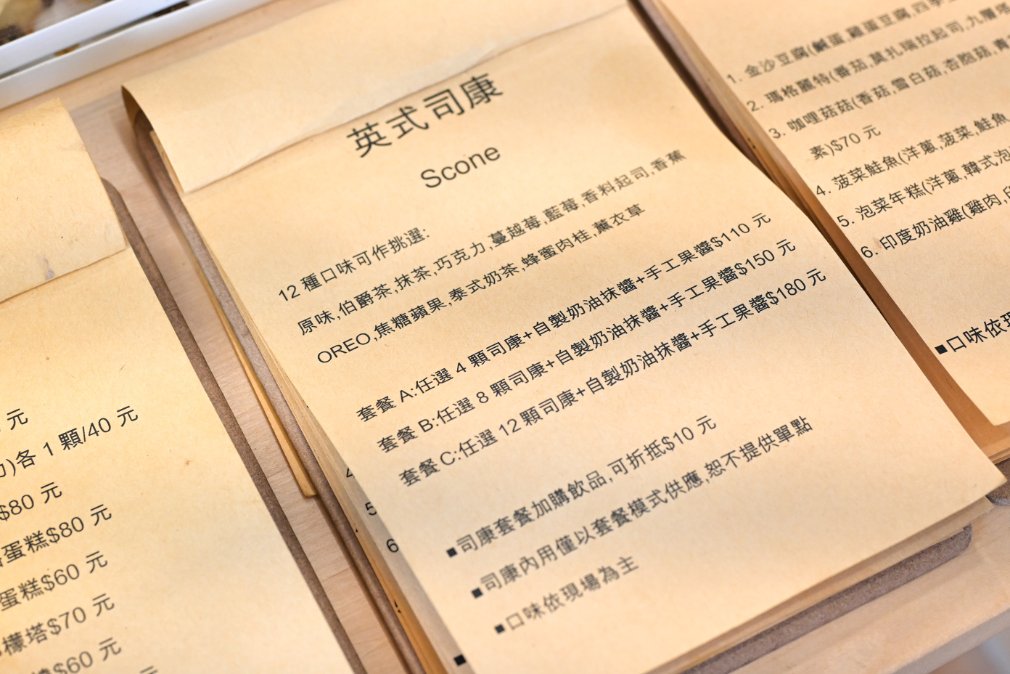 英式司康
Scone
12 種口味可作挑選:
原味,伯爵茶,抹茶,巧克力,蔓越莓,藍莓,香料起司,香蕉
OREO,焦糖蘋果,泰式奶茶,蜂蜜肉桂,薰衣草
套餐 A:任選 4 顆司康+自製奶油抹醬+手工果醬$110 元
套餐 B:任選 8 顆司康+自製奶油抹醬+手工果醬$150 元
套餐 C:任選 12 顆司康+自製奶油抹醬+手工果醬$180 元
■司康套餐加購飲品,可折抵$10 元
■司康內用僅以套餐模式供應,恕不提供單點
■口味依現場為主
4
5
6
元
)各 1 顆/40 元
$80 元
蛋糕$80 元
蛋糕$60 元
檬塔$70 元
$60 元
1. 金沙豆腐(鹹蛋,雞蛋豆腐,四季
2. 瑪格麗特(番茄,莫扎瑞拉起司,九層塔
3. 咖哩菇菇(香菇,雪白菇,杏胞菇,青
素)$70 元
4. 菠菜鮭魚(洋蔥,菠菜,鮭魚
5. 泡菜年糕(洋蔥,韓式泡
6. 印度奶油雞(雞肉,
■口味依現